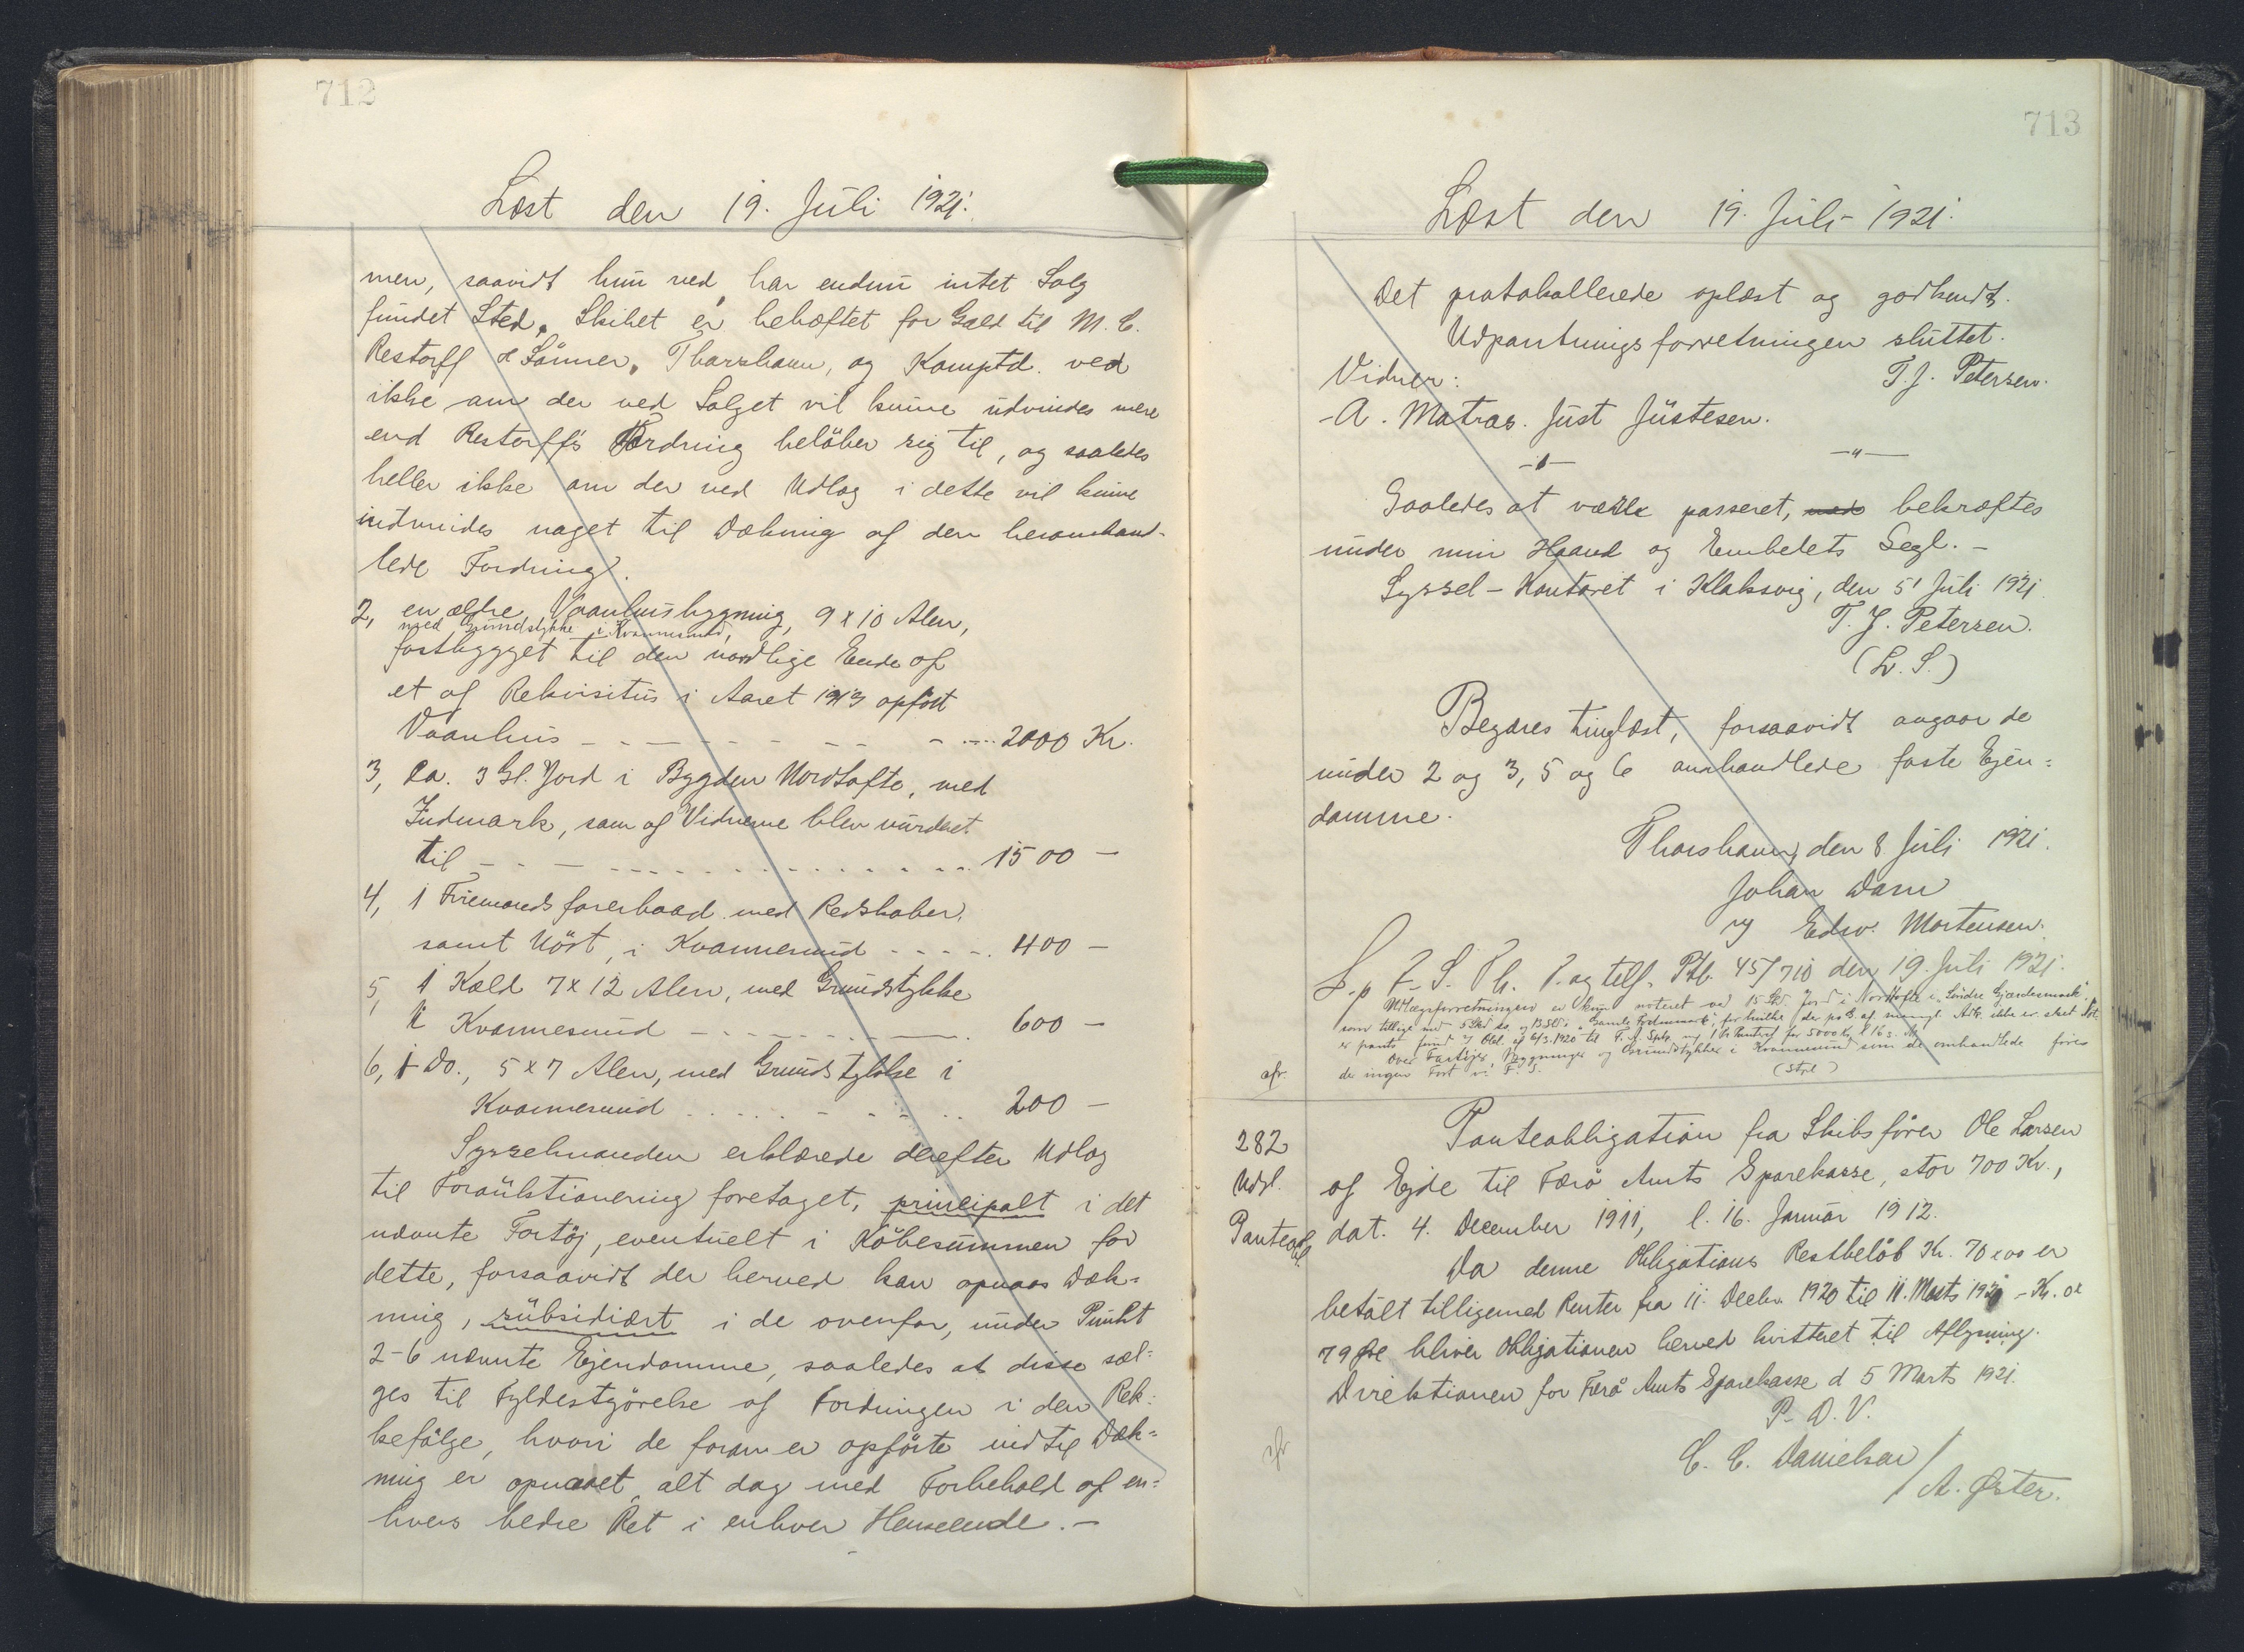 712
Læst den 19. Juli 1921.
men, saavidt hun ved, har endnu intet Salg
fundet Sted. Skibet er behæftet for Gæld til M. C.
Restorff & Sønner, Thorshavn, og Komptd. ved
ikke om der ved Salget vil kunne udvindes mere
end Restorff's Fordring beløber sig til, og saaledes
heller ikke om der ved Udlæg i dette vil kunne
indvindes noget til Dækning af den heromhand-
lede Fordring.
2, en ældre Vaanhusbygning, 9 x 10 Alen,
med Grundstykke i Kvannesund,
fastbygget til den nordlige Ende af
et af Rekvisitus i Aaret 1913 opført
Vaanhus - - - - - - - - 2000 Kr.
3, Ca. 3 Gl. Jord i Bygden Nordtofte, med
Indmark, som af Vidnerne blev vurderet
til - - - - - - - - 1500 -
4, 1 Firemandsfarerbaad med Redskaber,
samt Nöst, i Kvannesund - - - - 400 -
5, 1 Kæld 7 x 12 Alen, med Grundstykke
i Kvannesund - - - - - 600 -
6, 1 Do., 5 x 7 Alen, med Grundstykke i
Kvannesund - - - - - 200 -
Sysselmanden erklærede derefter Udlæg
til Foraüktionering foretaget, principalt i det
nævnte Fartöj, eventuelt i Köbesummen for
dette, forsaavidt der herved kan opnaas Dæk-
ning, subsidiært i de ovenfor, under Punkt
2-6 nævnte Ejendomme, saaledes at disse sæl-
ges til Fyldestgörelse af Fordringen i den Ræk-
kefölge, hvori de foran er opförte indtil Dæk-
ning er opnaaet, alt dog med Forbehold af en-
hvers bedre Ret i enhver Henseende. -
713
Læst den 19. Juli 1921.
Det protokollerede oplæst og godkendt.
Udpantningsforretningen sluttet.
T. J. Petersen.
Vidner:
A. Matras. Just Jüstesen.
-"- -"-
Saaledes at være passeret, bekræftes
under min Haand og Embedets Segl. -
Syssel-Kontoret i Klaksvig, den 5' Juli 1921
T. J. Petersen.
(L. S.)
Begæres tinglæst, forsaavidt angaar de
under 2 og 3, 5 og 6 omhandlede faste Ejen-
domme.
Thorshavn, den 8 Juli 1921.
Johan Dam
Edw. Mortensen.
L. p F. S. Th. T. og telf. Ptb. 45/710 den 19. Juli 1921.
Udlægsforretningen er kun noteret vd 15 Skd. Jord i Nordtofte i "Søndre Gjærdesmark",
som tillige med 5 Skd
er pants
over Fartöjer, Bygninger og Grundstykker i Kvannesund som de omhandlede föres
der ingen Fort v. F. S. (Stpl)
afr.
282
Udsl.
Panteobl.
Panteobligation fra Skibsförer Ole Larsen
af Ejde til Færö Amts Sparekasse, stor 700 Kr.,
dat. 4. December 1911, l. 16. Januar 1912.
Da denne Obligations Restbelöb Kr. 70 x 00 er
betalt tilligemed Renter fra 11. Decbr. 1920 til 11. Marts 1921 - Kr. 0 x
79 Øre bliver Obligationen herved kvitteret til Aflysning.
Direktionen for Færö Amts Sparekasse d 5 Marts 1921.
P. D. V.
C. C. Danielsen / A. Øster.
afr